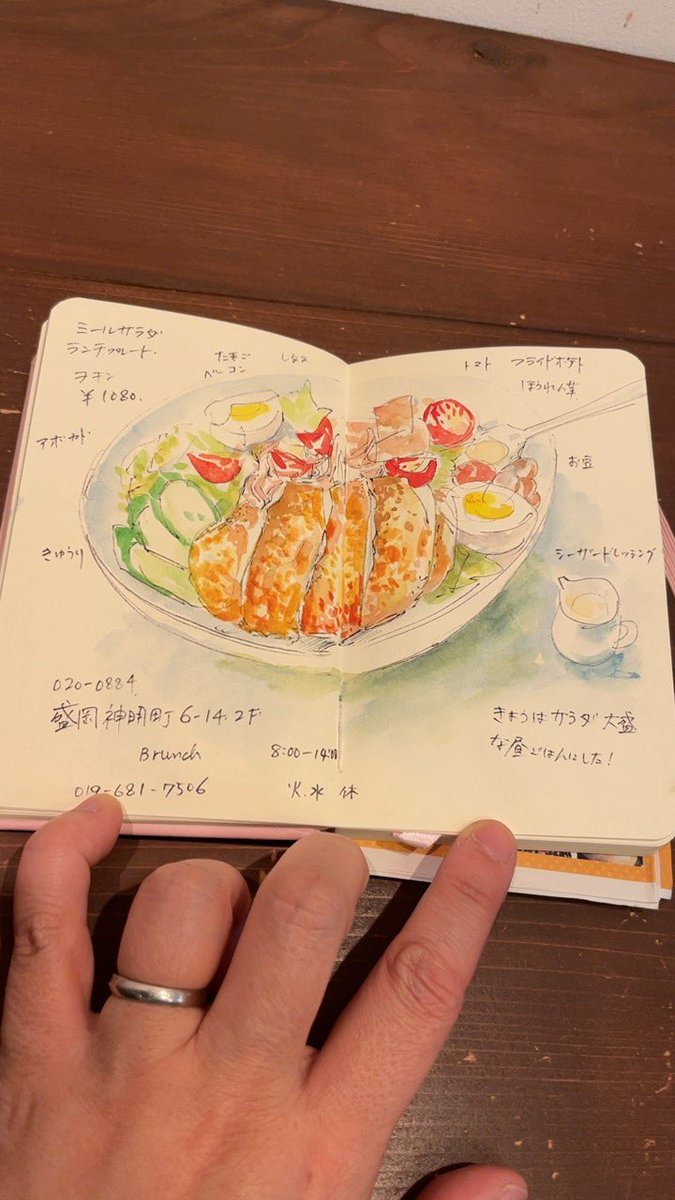 ミールサラダ
ランチプレート.
チキン
¥1080.
たまご
ベーコン
レタス
アボカド
きゅうり
トマト
フライドポテト
ほうれん草
お豆
シーザードレッシング
020-0884
盛岡神明町6-14.2F
Brunch
8:00-14:00
019-681-7506
火.水 休
きょうはサラダ大盛
な昼ごはんにした!